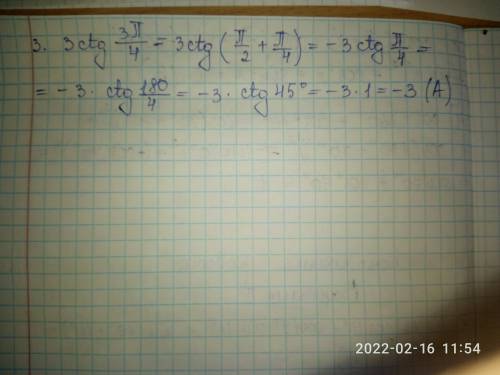 3. 3ctg 3π/4 = 3ctg (π/2 + π/4) = -3 ctg π/4 =
= -3 · ctg 180/4 = -3 · ctg 45° = -3 · 1 = -3 (A)
2022-02-16 11:54